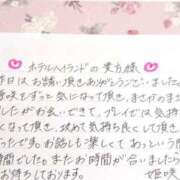 ホテルハイランドの貴方様
昨日はお誘い頂きありがとうございました
咲をずっと気になって頂き、まさかのまさ
したがお会いできて、プレイでは気持
なって頂き、攻めて気持ち良くして
ったです。お話も楽しくてあっという
間でした。またお時間が合いましたら
お待ちしております。
姫咲